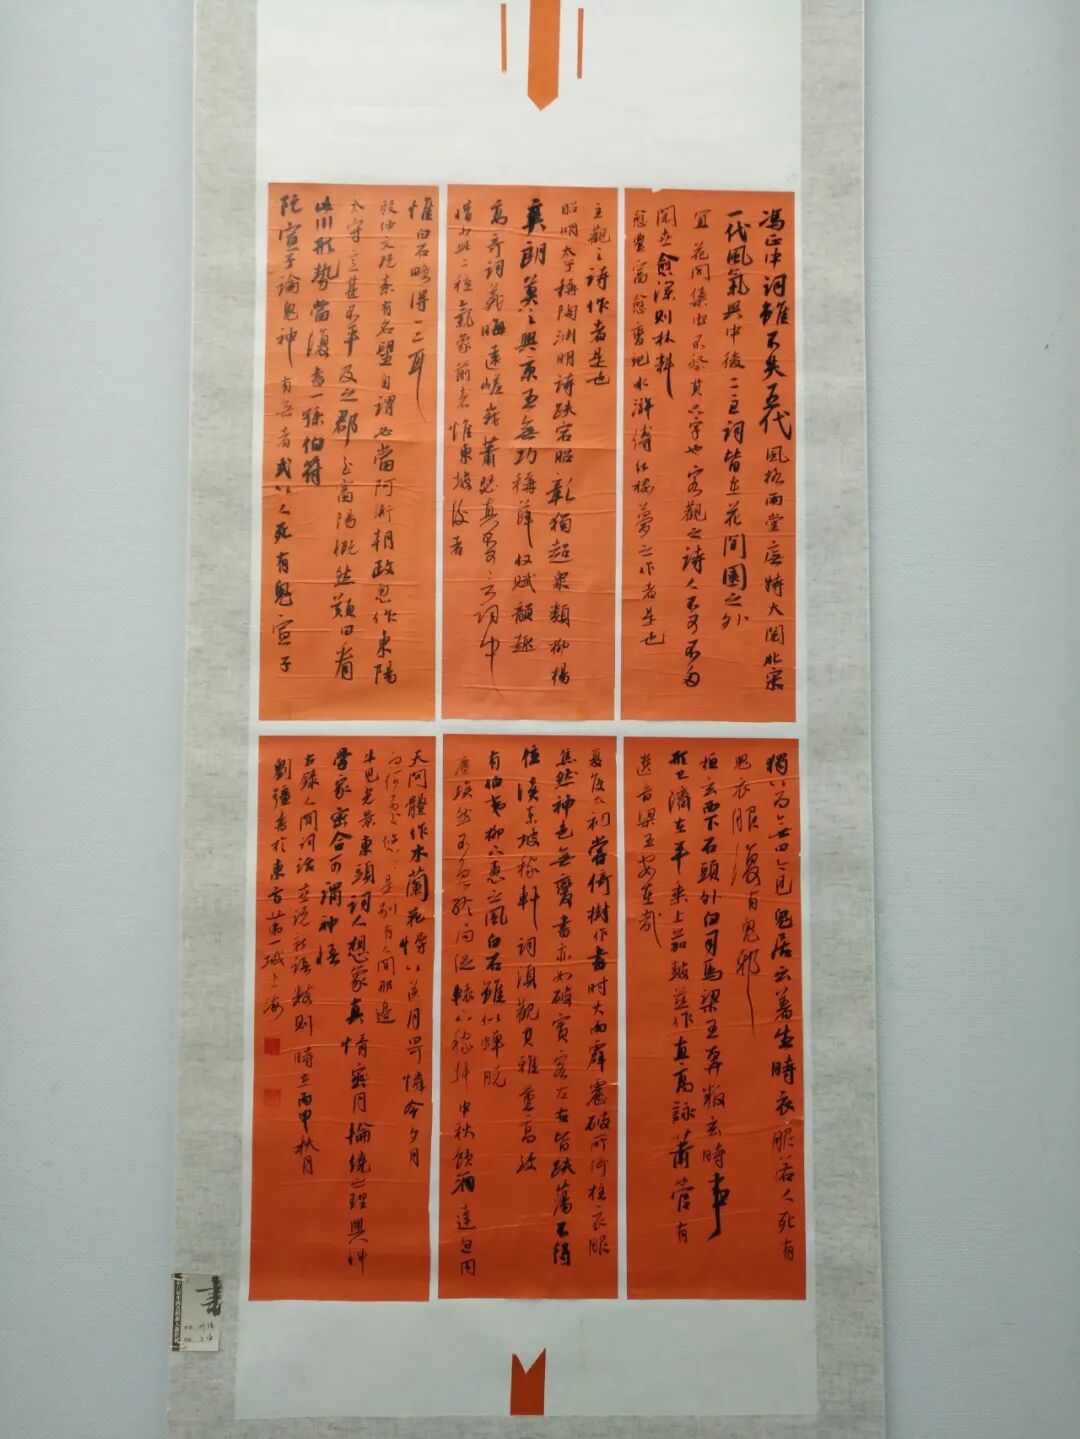 馮正中詞雖不失五代風格而堂廡特大開北宋
一代風氣與中後二主詞皆在花間園之外
宜花間集中不登其隻字也客觀之詩人不可不多
閱世愈深則材料
愈豐富愈變記水滸傳紅樓夢之作者是也
主觀之詩作者是也
昭明太子稱陶淵明詩跌宕昭彰獨超眾類抑揚
爽朗莫之與京王無功稱薛收賦韻趣
高奇詞義晦遠嵯峨蕭瑟真不可言詞中
惜少此二種氣象前者惟東坡後者
惟白石略得一二耳
殷仲文既素有名望自謂必當阿衡朝政忽作東陽
太守意甚不平及之郡至富陽慨然歎曰看
此川形勢當復出一孫伯符
阮宣子論鬼神有無者或以人死有鬼宣子
獨以為無曰今見鬼者云著生時衣服若人死有
鬼衣服復有鬼邪
桓玄西下石頭外白司馬梁王奔叛玄時事
形已濟在平乘上笳鼓並作直高詠蕭管有
遺音梁王安在哉
夏侯太初嘗倚樹作書時大雨霹靂破所倚柱衣服
焦然神色無變書亦如故賓客左右皆跌蕩不得
住讀東坡稼軒詞須觀其雅量高致
有伯夷柳下惠之風白石雖似蟬脫
塵埃然不免終局促轅下稼軒中秋飲酒達旦用
天問體作木蘭花慢以送月曰可憐今夕月
向何處悠悠是別有人間那邊
才見光景東頭詞人想象直悟
學家密合可謂神悟
右錄人間詞話世說新語數則時在丙申秋月
劉彊書於東方第一城上海
書
上海